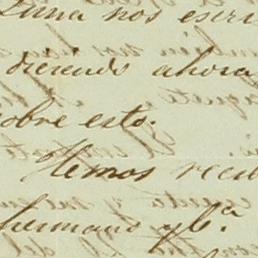 Luna nos escri
diciendo ahora
sobre esto.
Hemos reci
hermano y Ca.